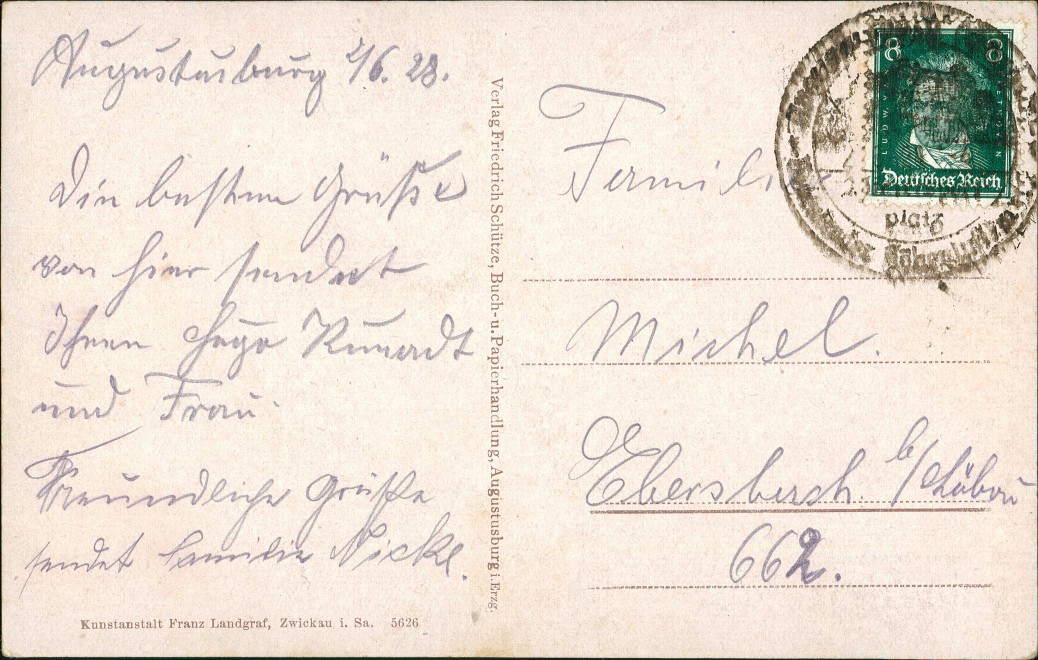 Augustusburg 2/6. 28.
Die besten Grüße
von hier sendet
Ihnen Hugo
und Frau.
Freundliche Grüße
sendet Familie Nicke.
Verlag Friedrich Schütze, Buch- u. Papierhandlung, Augustusburg i. Erzg.
Kunstanstalt Franz Landgraf, Zwickau i. Sa. 5626
8 8
Deutsches Reich
platz
Familie
Michel.
Ebersbach b/Löbau
662.